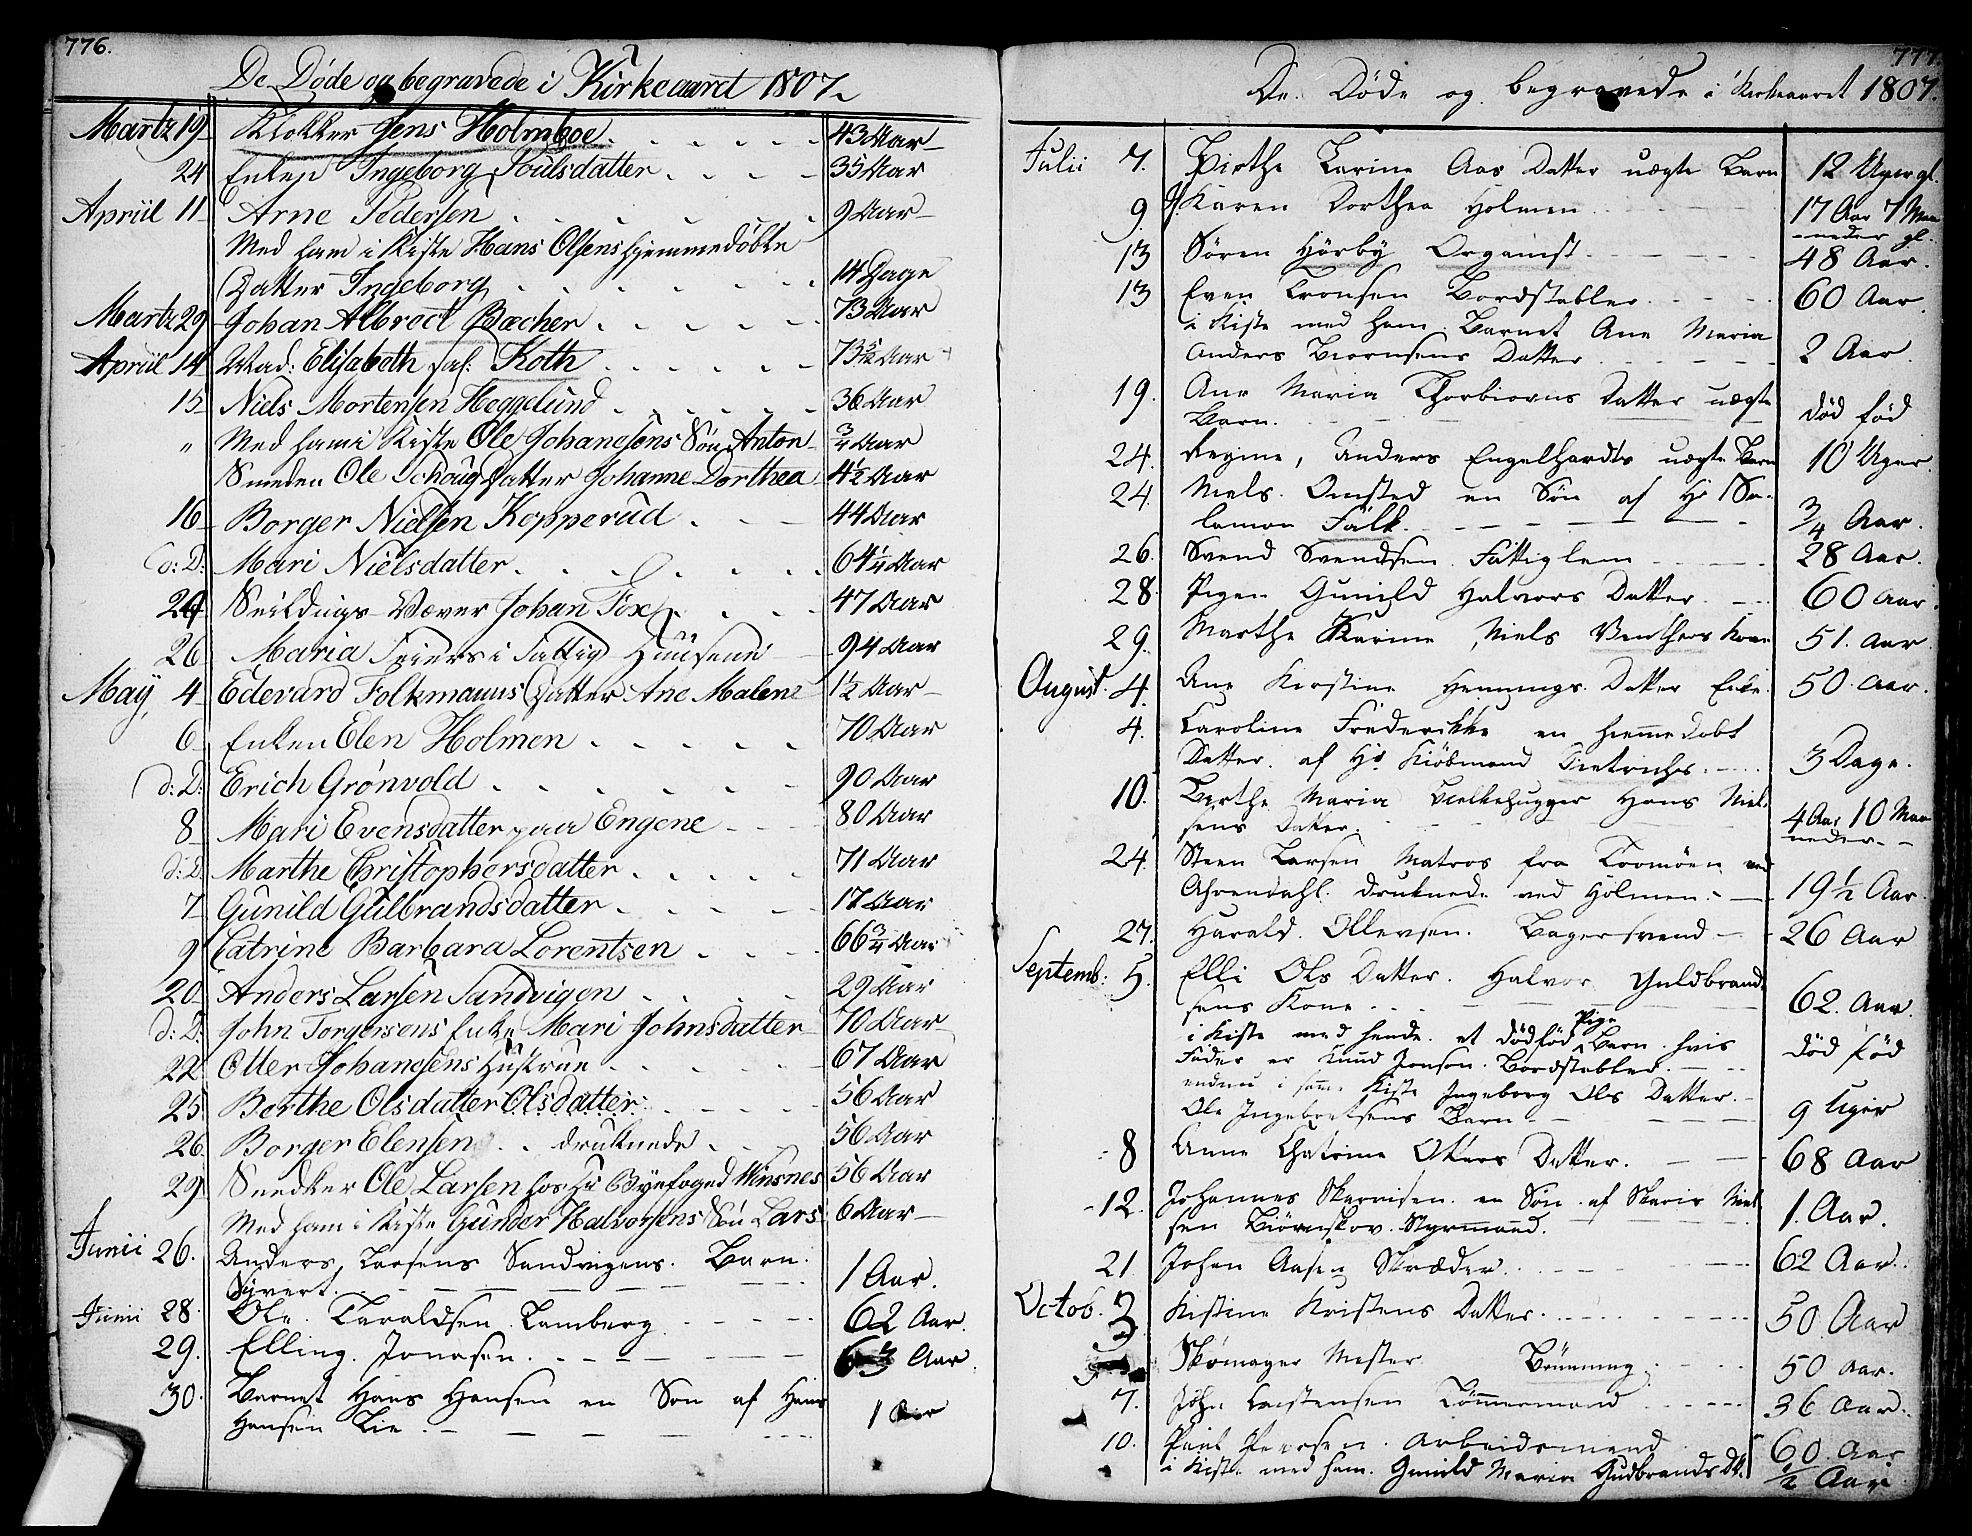 776.
De Døde og begravede i Kirkeaaret 1807.
Martz 19 Klokker Jens Holmboe 43 Aar
24 Enken Ingeborg Poulsdatter 35 Aar
Apriil 11 Arne Pedersen 9 Aar
Med ham i Kiste Hans Olsens hjemmedøbte
Datter Ingeborg 14 Dage
Martz 29 Johan Albrect Bæcher 73 Aar
Apriil 14 Mad: Elisabeth sal: Koth 73 5/12 Aar
15 Niels Mortensen Heggelund 36 Aar
" Med ham i Kiste Ole Johanesens Søn Anton 3/4 Aar
Smeden Ole Schoug Datter Johanne Dorthea 4 1/2 Aar
16 Borger Nielsen Kopperud 44 Aar
d: D: Mari Nielsdatter 64 1/4 Aar
24 Seildugs Væver Johan Fox 47 Aar
26 Maria Feiers i Fattig Huusene 94 Aar
May 4 Edevard Folkmanns Datter Ane Malene 1 1/2 Aar
6 Enken Elen Holmen 70 Aar
d: D: Erich Grönvold 90 Aar
8 Mari Evensdatter paa Engene 80 Aar
d: D: Marthe Christophersdatter 71 Aar
7 Gunild Gulbrandsdatter 17 Aar
9 Catrine Barbara Lorentsen 66 3/4 Aar
20 Anders Larsen Sandvigen 29 Aar
d: D: John Torgersens Enke Mari Johnsdatter 70 Aar
22 Otter Johanesens Hustrue 67 Aar
25 Berthe Olsdatter Olsdatter 56 Aar
26 Borger Elensen druknede 56 Aar
29 Snedker Ole Larsen hos Hr Byefoged Winsnes 56 Aar
Med ham i Kiste Gunder Halvorsens Søn Lars 6 Aar
Junii 26. Anders Larsens Sandvigens Barn
Syvert. 1 Aar.
Junii 28. Ole Taraldsen Tamberg 62 Aar.
29. Elling Jonasen. 63 Aar.
30. Barnet Hans Hansen en Søn af Hans
Hansen Lie. 1 Aar
777.
De Døde og begravede i Kirkeaaret 1807.
Julii 7. Birthe Karine Aas Datter uægte Barn 12 Uger gl.
9. J. Karen Dorthea Holmen 17 Aar 7 Maa-
neder gl.
13 Sören Hörby Organist 48 Aar.
13 Even Tronsen Bordstabler 60 Aar
i Kiste med ham Barnet Ane Maria
Anders Biornsens Datter 2 Aar.
19. Ane Maria Thorbiorns Datter uægte
Barn. død fød
24. Regine, Anders Engelhardts uægte Barn 10 Uger.
24. Niels Omsted en Søn af Hr Sa-
lamon Falk. 3/4 Aar.
26. Svend Svendsen Fattiglem 28 Aar.
28. Pigen Gunild Halvors Datter 60 Aar.
29. Marthe Karine, Niels Benthers Kone 51. Aar
August. 4. Ane Kirstine Hennings Datter Enke 50. Aar.
4. Caroline Frederikke en hiemmedøbt
Datter af Hr Kiöbmand Dietrichs 3 Dage.
10. Berthe Maria Bielkehugger Hans Niel-
sens Datter. 4 Aar 10 Maa-
neder
24. Steen Larsen Matros fra Tromöen ved
Ahrendahl. druknede ved Holmen 19 1/2 Aar.
27. Harald Ollevsen. Bagersvend 26 Aar
Septemb: 5. Elli Ols Datter. Halvor Guldbrand-
sens Kone 62. Aar.
i Kiste med hende et dødfød Pige Barn hvis
Fader er Knud Jonson. Bordstabler. død fød
endnu i same Kiste Ingeborg Ols Datter.
Ole Ingebretsens Barn 9 Uger
8 Anne Chatrine Otters Datter. 68 Aar
12. Johannes Skarvisen en Søn af Skarir Niel-
sen Biörnskov. Styrmand. 1. Aar.
21 Johan Aasen Skræder 62 Aar.
Octob. 3 Kistine Kristens Datter. 50. Aar
Skomager Mester Brünning 50 Aar.
7. John Carstensen Tömmermand 36 Aar.
10. Paul Peersen. Arbeidsmand 60. Aar
i Kiste med ham. Gunild Maria Gudbrands Dtr. 1/2 Aar